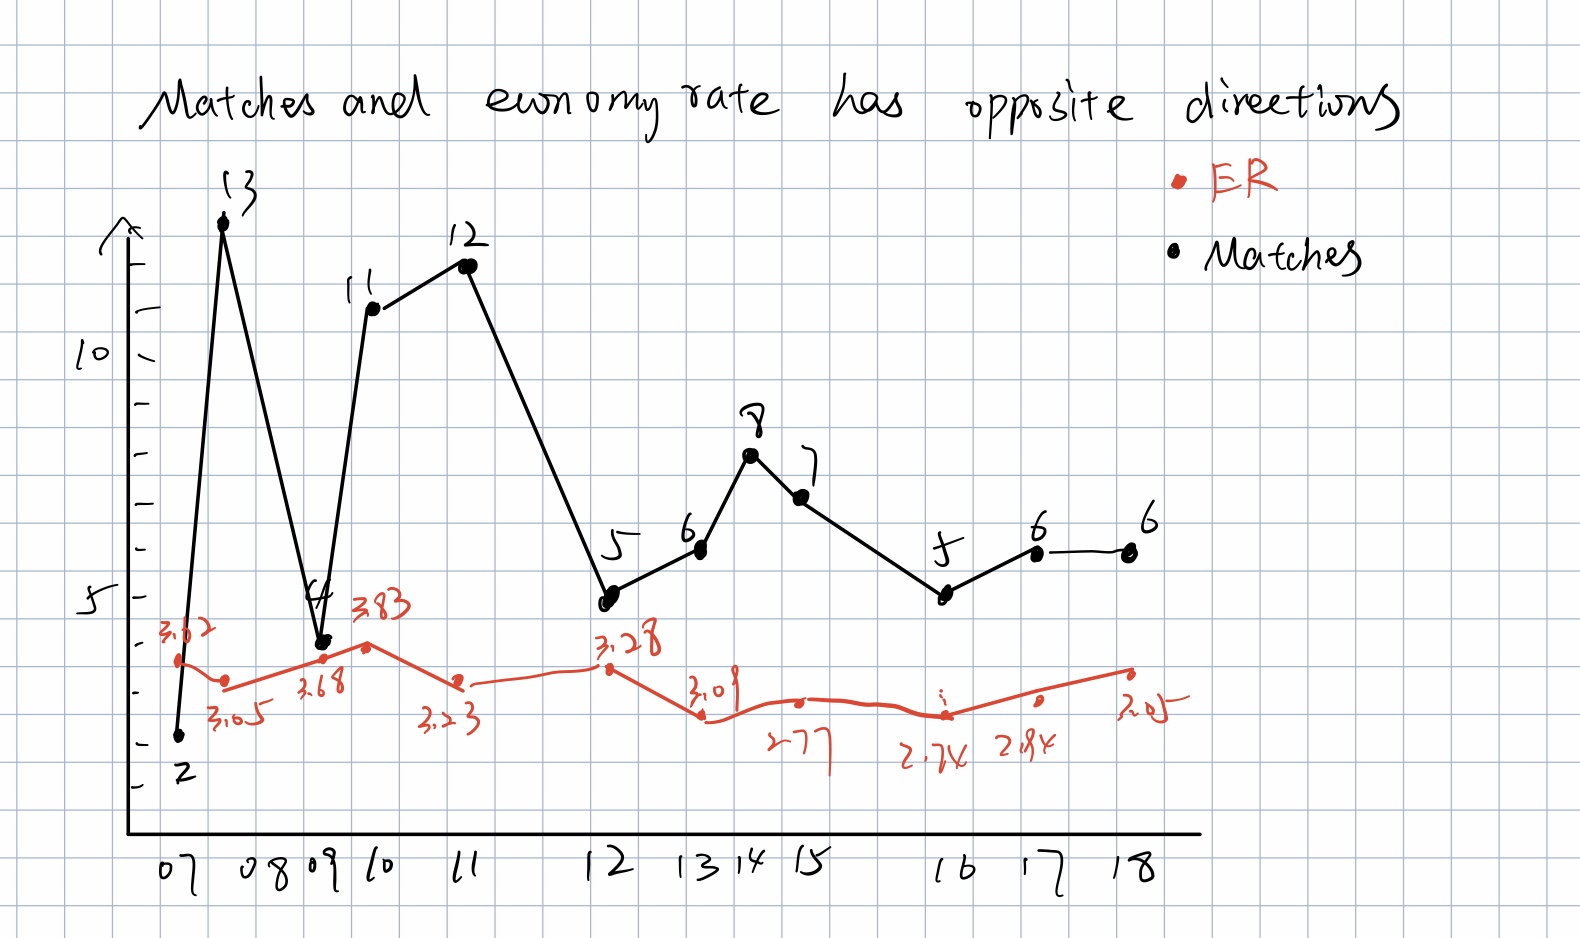 Matches and economy rate has opposite directions
ER
Matches
13
12
11
10
8
7
5
6
5
6
6
4
5
3.62
3.83
3.28
3.05
3.68
3.23
3.01
2.77
2.74
2.94
3.05
2
07 08 09 10 11 12 13 14 15 16 17 18